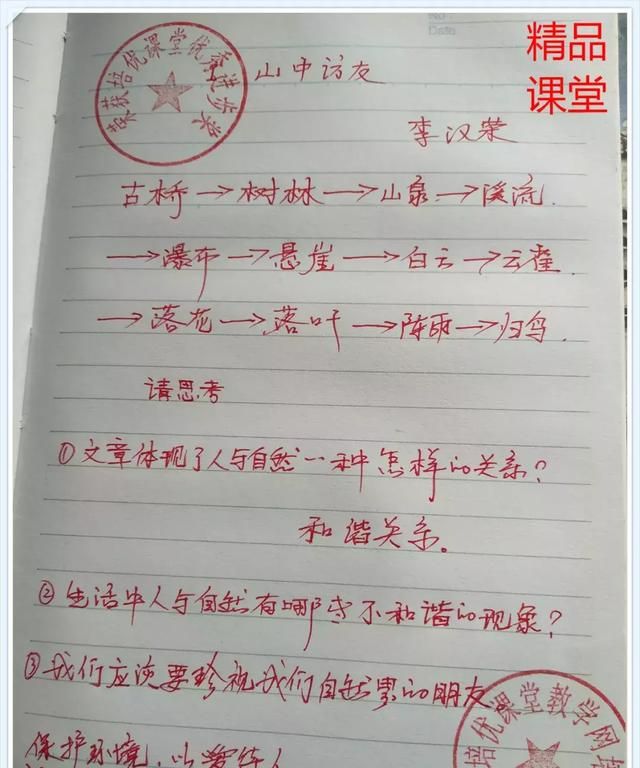 No
Date
精品
课堂
荣获培优课堂优秀进步奖
山中访友
李汉荣
古桥→树林→山泉→溪流.
→瀑布→悬崖→白云→云雀.
→落花→落叶→阵雨→归鸟.
请思考
①文章体现了人与自然一种怎样的关系?
和谐关系。
②生活中人与自然有哪些不和谐的现象?
③我们应该要珍视我们自然界的朋友。
保护环境,以爱待人
培优课堂教学网